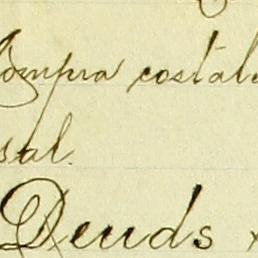 Compra costál
sal.
Deuds